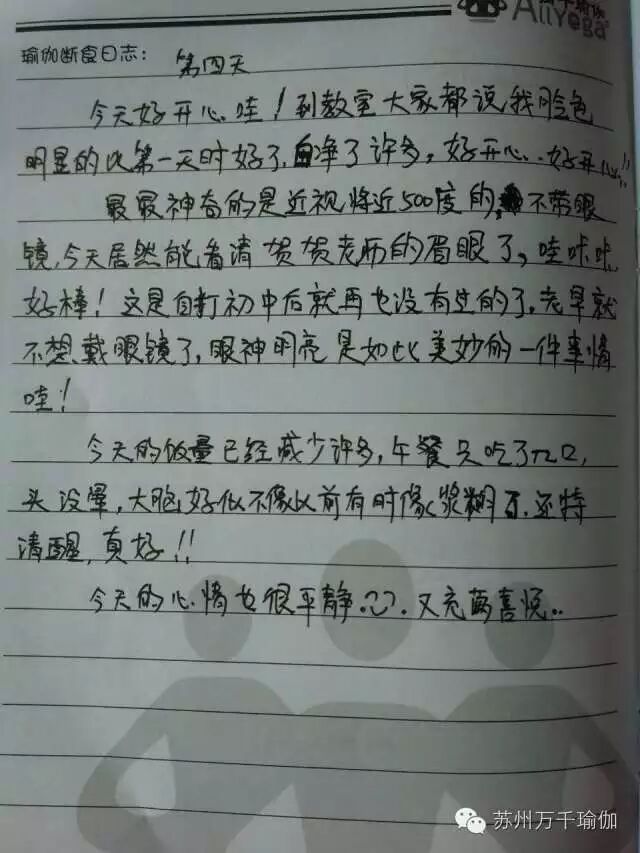 万千瑜伽
AllYoga
瑜伽断食日志：
第四天
今天好开心哇！到教室大家都说我脸色
明显的比第一天时好了，白净了许多，好开心..好开心!!
最最神奇的是近视将近500度的，不带眼
镜，今天居然能看清贺贺老师的眉眼了，哇咔咔
好棒！这是自打初中后就再也没有过的了，老早就
不想戴眼镜了，眼神明亮是如此美妙的一件事情
哇！
今天的饭量已经减少许多，午餐只吃了几口，
头没晕，大脑好似不像以前有时像浆糊了，还特
清醒，真好!!
今天的心情也很平静.又充满喜悦..
苏州万千瑜伽